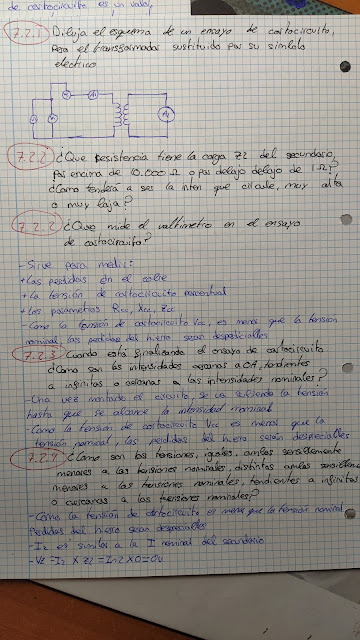 de cortocircuito es un valor,
7.2.1 Dibuja el esquema de un ensayo de cortocircuito,
Pero el transformador sustituido por su simbolo
electrico
7.2.2 ¿Que resistencia tiene la carga Z2 del secundario,
por encima de 10.000 Ω o por debajo delajo de 1Ω?
¿Como tenderá a ser la inten que circule, muy alta
o muy baja?
7.2.2 ¿Que mide el voltimetro en el ensayo
de cortocircuito?
- Sirve para medir:
+ Las perdidas en el cobre
+ La tensión de cortocircuito porcentual
+ Los parametros Rcc, Xcc, Zcc
- Como la tensión de cortocircuito Vcc, es menos que la tensión
nominal las perdidas del hierro seran despreciables
7.2.3 Cuando está finalizando el ensayo de cortocircuito
¿Como son las intensidades cercanas a 0A, tendientes
a infinitos o cercanas a las intensidades nominales?
- Una vez montado el circuito, se va subiendo la tensión
hasta que se alcance la intensidad nominal
- Como la tensión de cortocircuito Vcc es menos que la
tensión nominal, las perdidas del hierro serán despreciables
7.2.4 ¿Como son las tensiones, iguales, ambas sensiblemente
menores a las tensiones nominales, distintas ambas sensiblem
menores a las tensiones nominales, tendientes a infinitos
o cercanas a las tensiones nominales?
- Como la tensión de cortocircuito es menos que la tensión nominal,
Perdidas del hierro seran despreciables
- I2 es similar a la I nominal del secundario
- V2 = I2 x Z2 = In2 x 0 = 0v